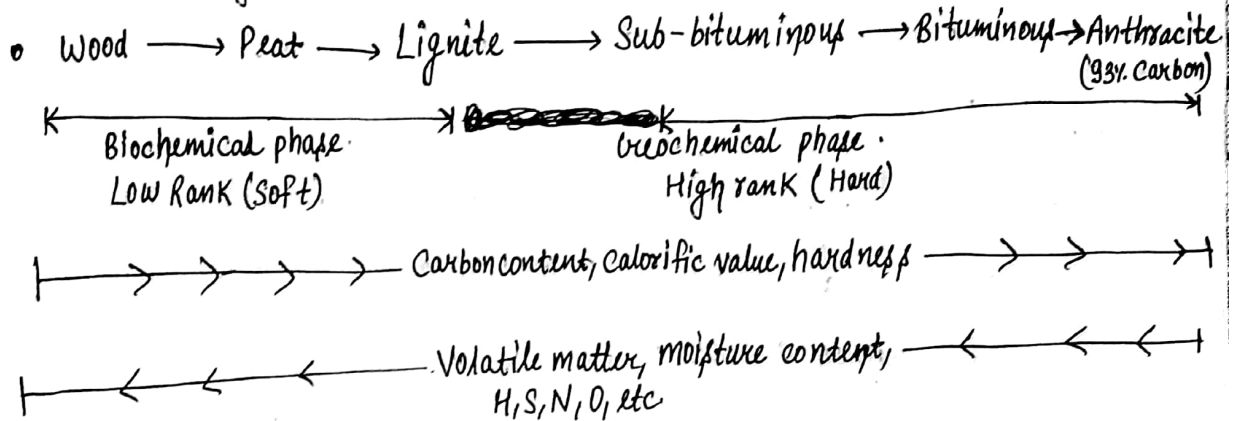 • Wood → Peat → Lignite → Sub-bituminous → Bituminous → Anthracite
(93% Carbon)
Biochemical phase.
Low Rank (Soft)
Geochemical phase.
High rank (Hard)
Carbon content, calorific value, hardness
Volatile matter, moisture content,
H, S, N, O, etc